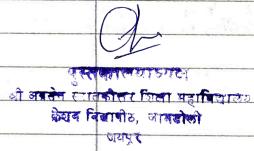 पुस्तकालयाध्यक्ष
श्री अग्रसेन स्नातकोत्तर शिक्षा महाविद्यालय
केशव विद्यापीठ, जामडोली
जयपुर